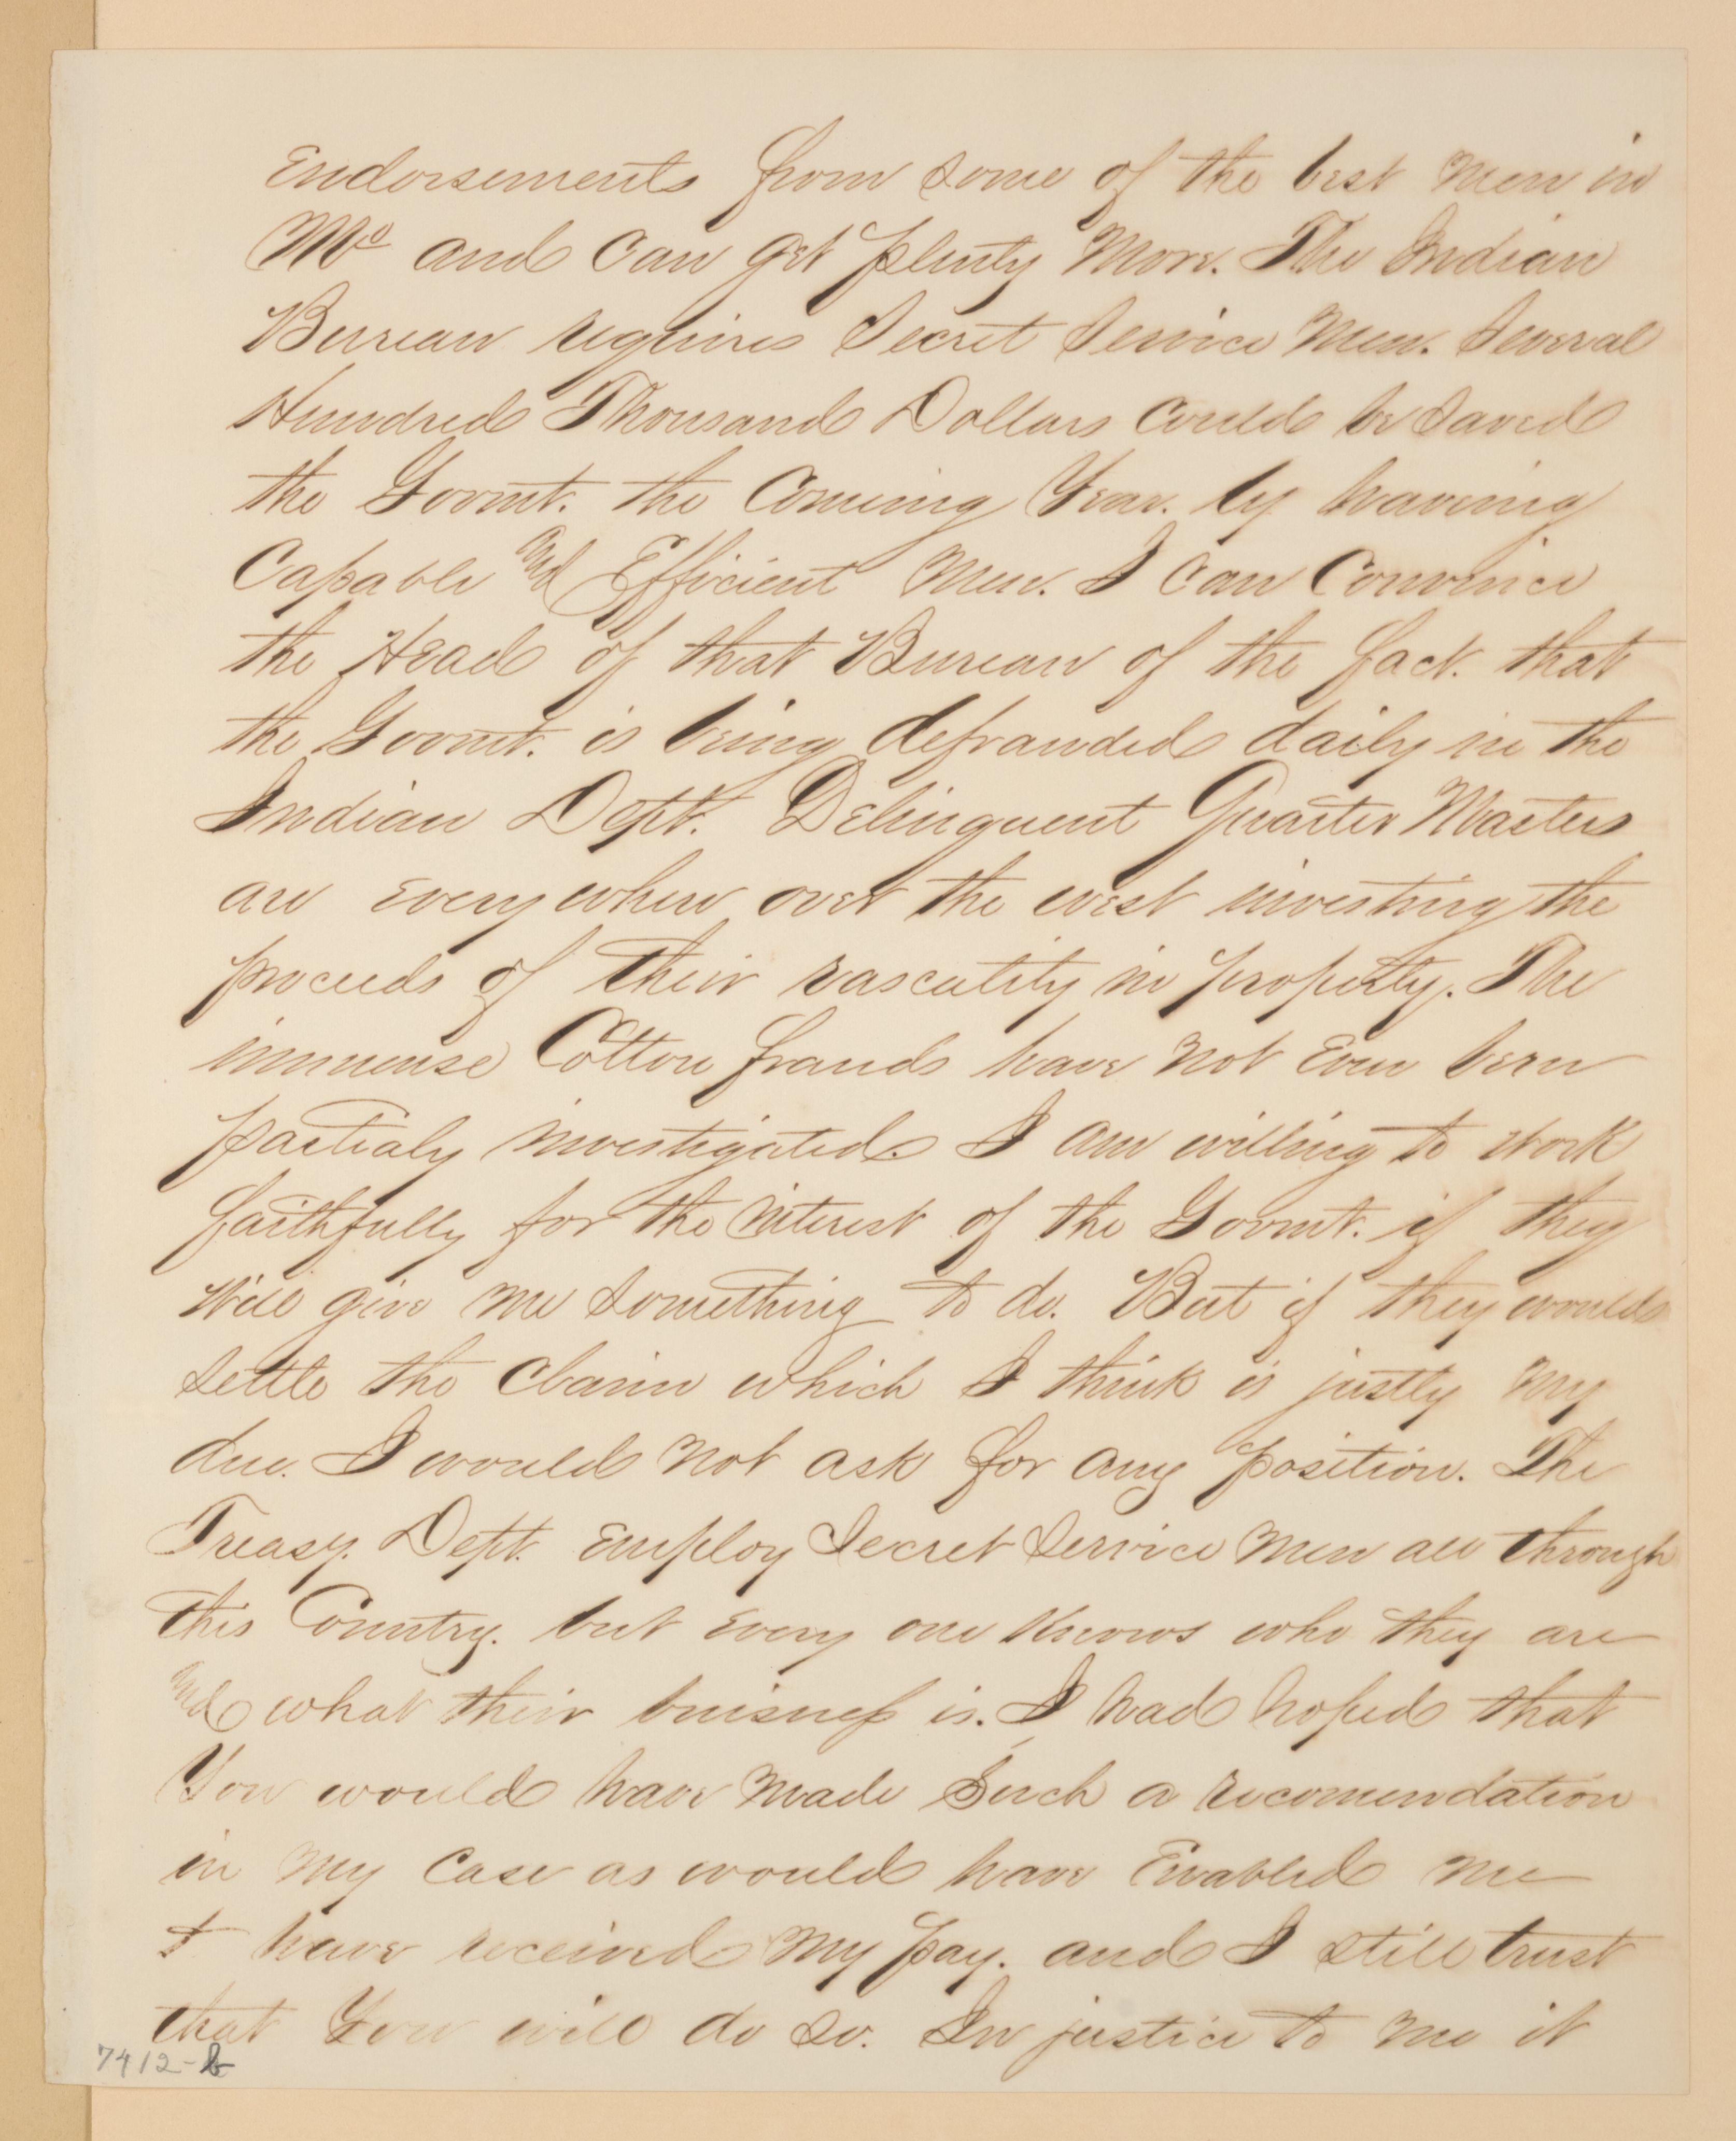 Endorsements from some of the best men in
Mo and can get plenty more. The Indian
Bureau requires Secret Service Men. Several
Hundred Thousand Dollars could be saved
the Govmt. the Coming Year. by haveing
Capable And Efficient Men. I can Convince
the Head of that Bureau of the fact. that
the Govmt. is being defrauded daily in the
Indian Dept. Delinquent Quarter Masters
are everywhere over the west investing the
proceeds of their rascality in property. The
immense Cotton frauds have not Even been
partialy investigated. I am willing to work
faithfully for the interest of the Govmt. if they
Will give me something to do. But if they would
settle the claim which I think is justly my
due. I would not ask for any position. The
Treasy. Dept. Employ Secret Service Men all through
this Country. but every one Knows who they are
And what their buisness is. I had hoped that
You would have made Such a recomendation
in my case as would have Enabled me
to have received my pay. and I still trust
that You will do so. In justice to me it
7412-b